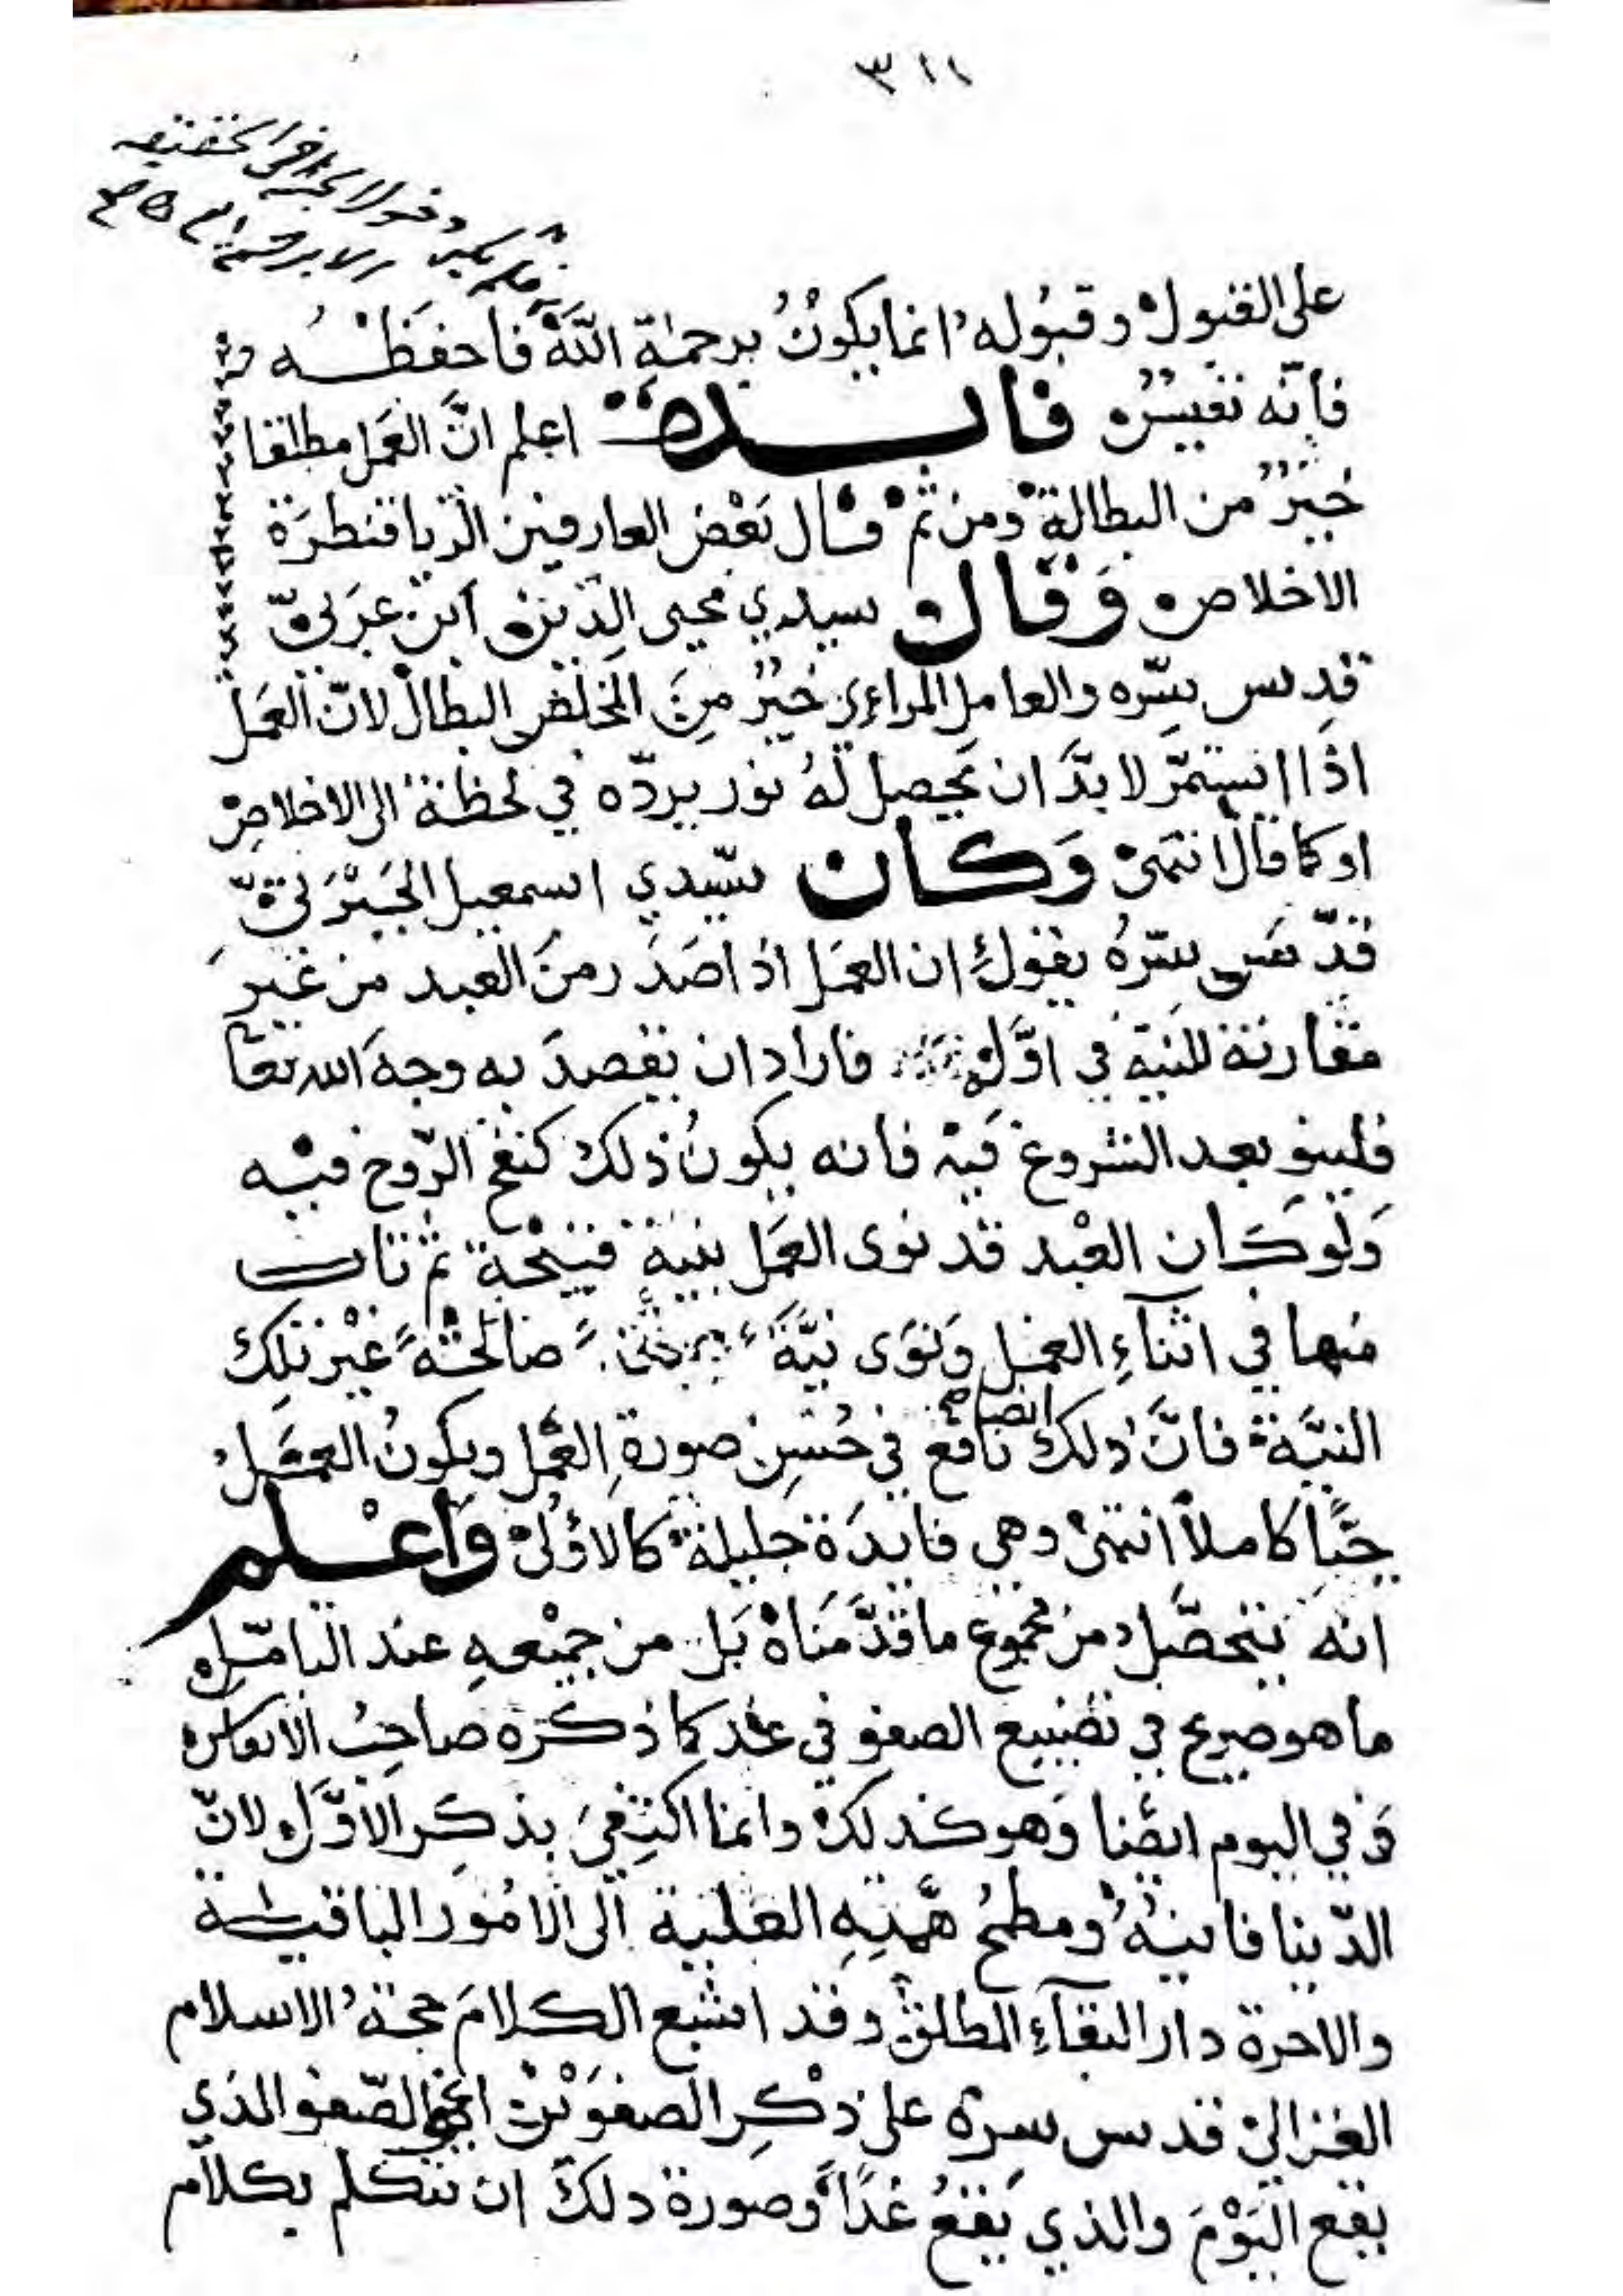 ٣١١
فلم يكن دخول الجنة في الحقيقة
الا برحمته
على القبول وقبوله انما يكون برحمة الله فاحفظه
فانه نفيس فايدة اعلم ان العمل مطلقا
خير من البطالة ومن ثم قال بعض العارفين الريا قنطرة
الاخلاص وقال سيدي محيى الدين ابن عربي
قدس سره والعامل المراءي خير من المخلص البطال لان العمل
اذا استمر لا بد ان يحصل له نور يرده في لحظة الى الاخلاص
او كما قال انتهى وكان سيدي اسمعيل الجبرتي
قدس سره يقول ان العمل اذا صدر من العبد من غير
مقارنة للنية في اوله فاراد ان يقصد به وجه الله تعا
فلينو بعد الشروع فيه فانه يكون ذلك كنفخ الروح فيه
ولو كان العبد قد نوى العمل بنية قبيحة ثم تاب
منها في اثناء العمل ونوى نية صالحة غير تلك
النية فان ذلك ايضا نافع في حسن صورة العمل ويكون العمل
حيا كاملا انتهى وهي فايدة جليلة كالاولى واعلم
انه يتحصل من مجموع ما قدمناه بل من جميعه عند التامل
ما هو صريح في تضييع الصفو في غد كما ذكره صاحب
وفي اليوم ايضا وهو كذلك وانما اكتفى بذكر الاول لان
الدنيا فانية ومطمح همته العلية الى الامور الباقية
والاخرة دار البقاء المطلق وقد اشبع الكلام حجة الاسلام
الغزالي قدس سره على ذكر الصفوين اعني الصفو الذي
يقع اليوم والذي يقع غدا وصورة ذلك ان نتكلم بكلام